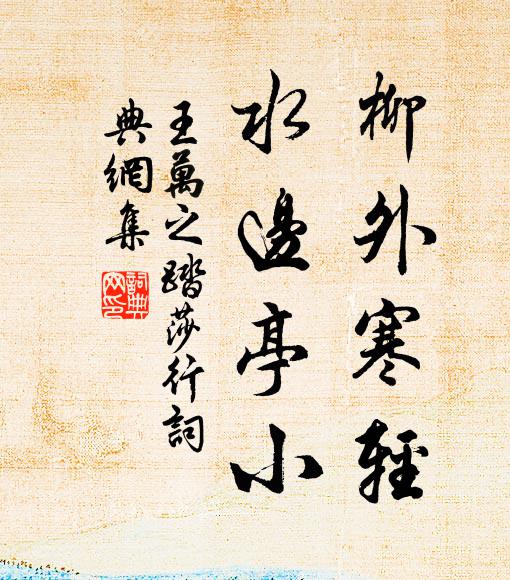 柳外寒輕
水邊亭小
王萬之踏莎行詞
典網集
詞典網印